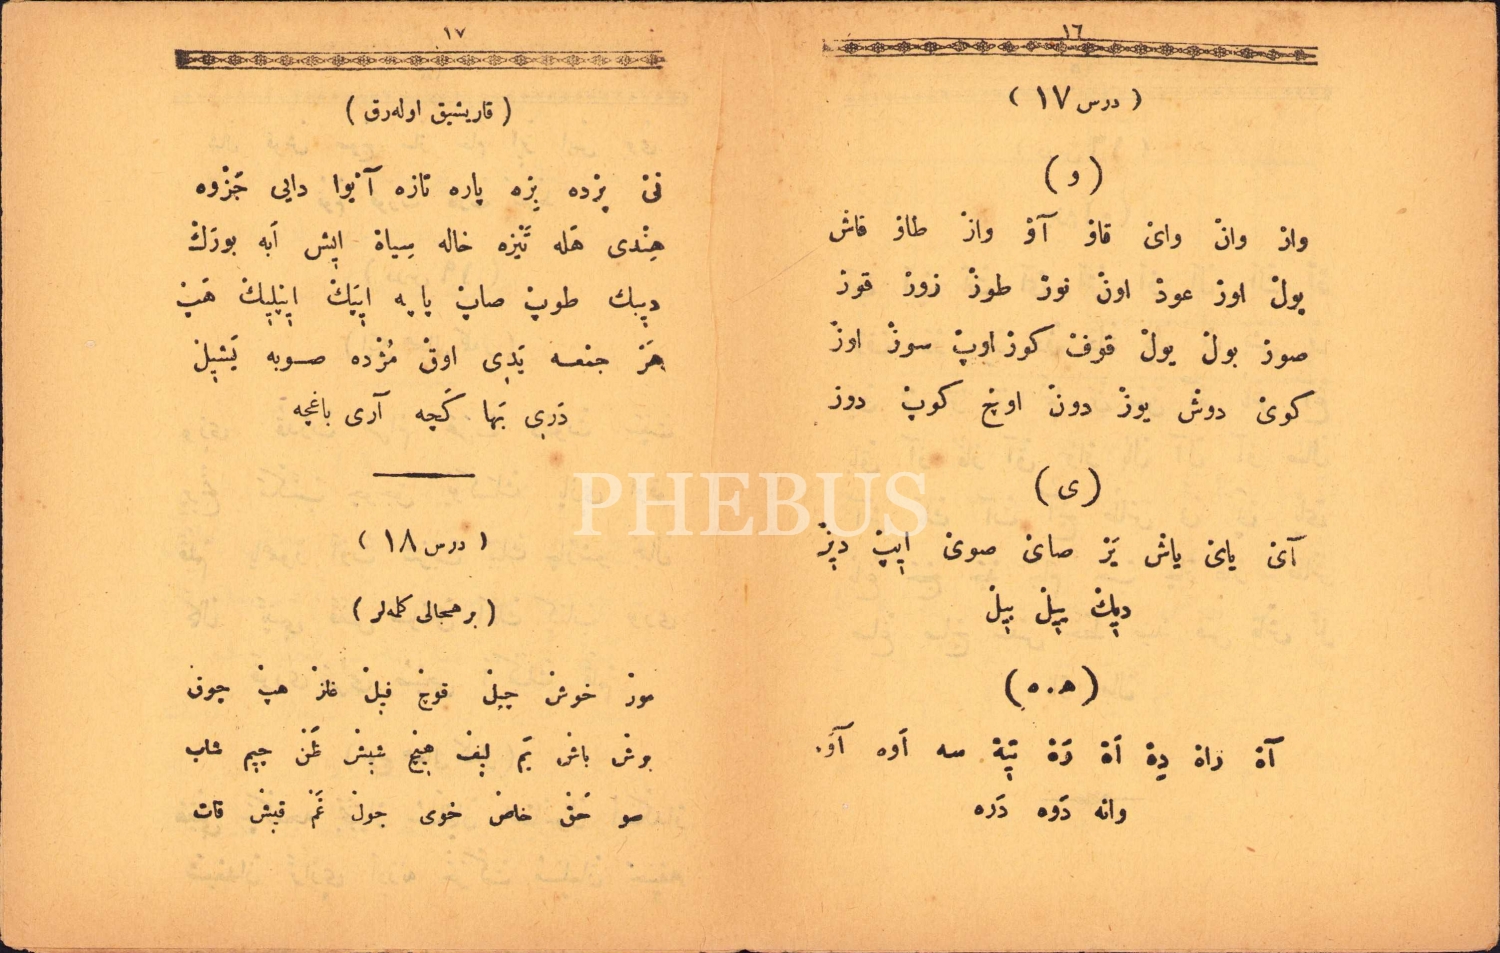 ١٦
( درس ١٧ )
( و )
وار وان وای قاو آو واز طاو قاش
یول اوز عود اون نوز طوز زوز قوز
صوز بول یول قوف کوز اوپ سوز اوز
کوی دوش یوز دون اوچ کوپ دوز
( ی )
آی یای یاش یَز صای صوی ایپ دیز
دیك پیل بیل
( ه ، ه )
آه راه دِه اَه رَه تپه سه اَوه آوَ
وانه دَوه دَره
١٧
( قاریشیق اوله‌رق )
نی بزده بِزه پاره تازه آیوا دایی جَزوه
هِندی هَله تَیزه خاله سِیاه ایش اَبه بورَك
دیبك طوپ صاپ پاپه ایپَك ایپلیك هَپ
هَر جمعه یَدی اوق مُژده صوبه یَشیل
دَری بَها کَچه آری باغچه
( درس ١٨ )
( بر هجالی کلمه‌لر )
مور خوش چیل قوچ فیل غاز هپ چوق
بوش باش یَم لیف هیچ شیش ظَن جیم شاب
صو حَق خاص خوی چول غَم قیش قات
PHEBUS